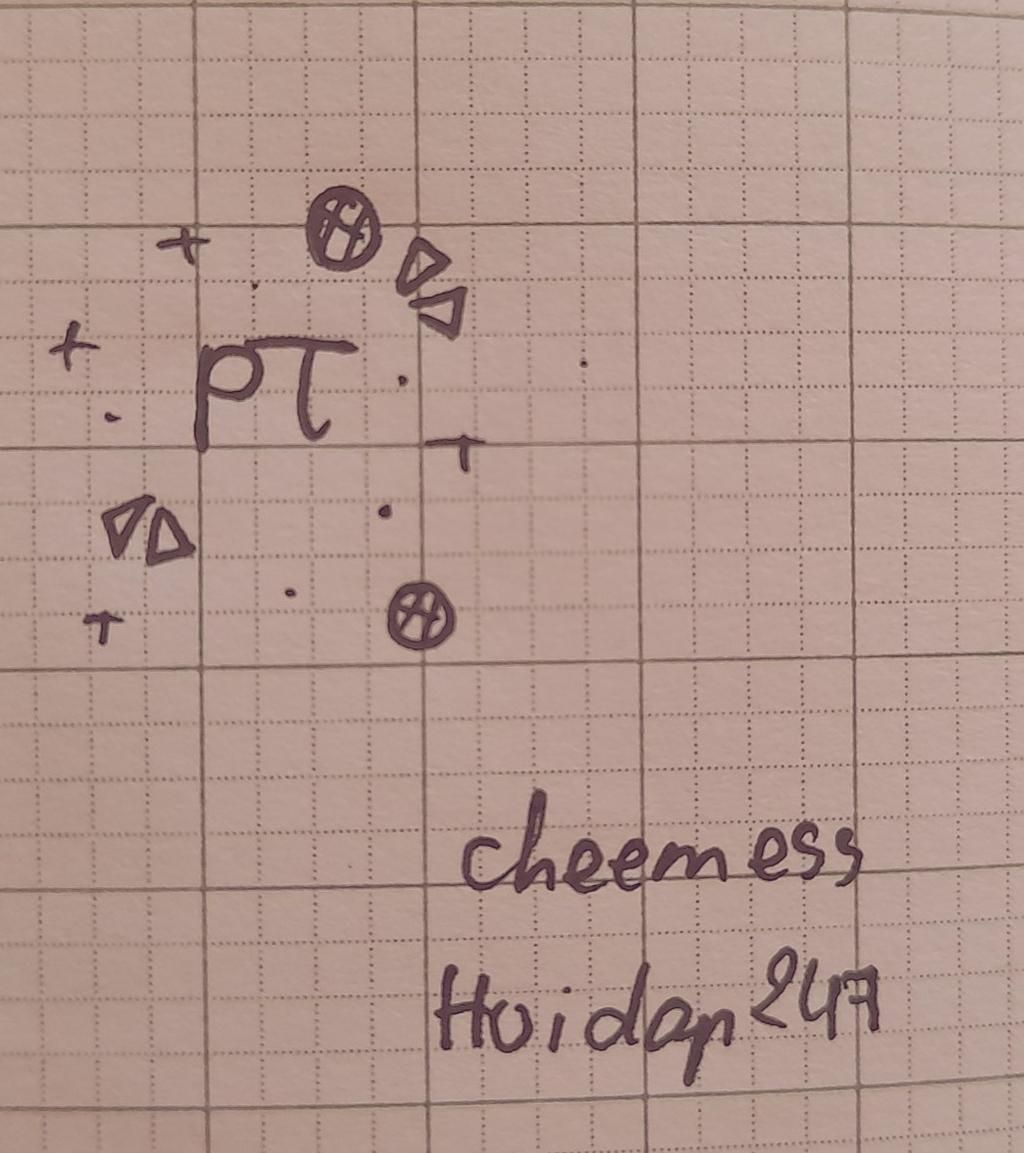 PT
cheemess
Hoidap247